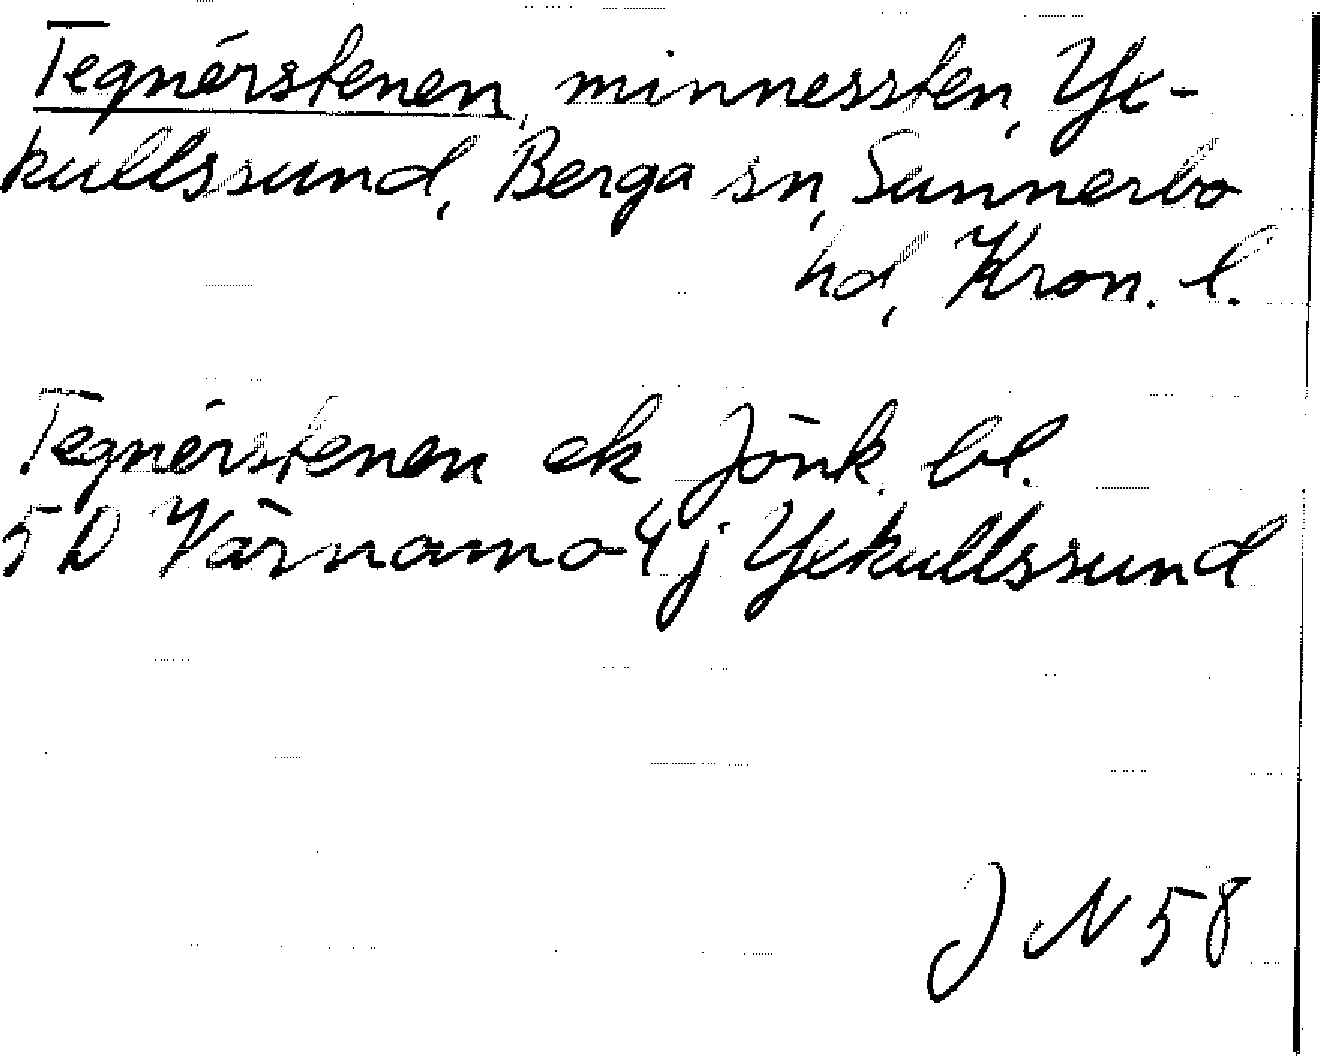 Tegnérstenen, minnessten, Yx-
kullssund, Berga sn, Sunnerbo
hd, Kron. l.
Tegnérstenen ek Jönk. bl.
5D Värnamo 4j Yxkullssund
J N 58